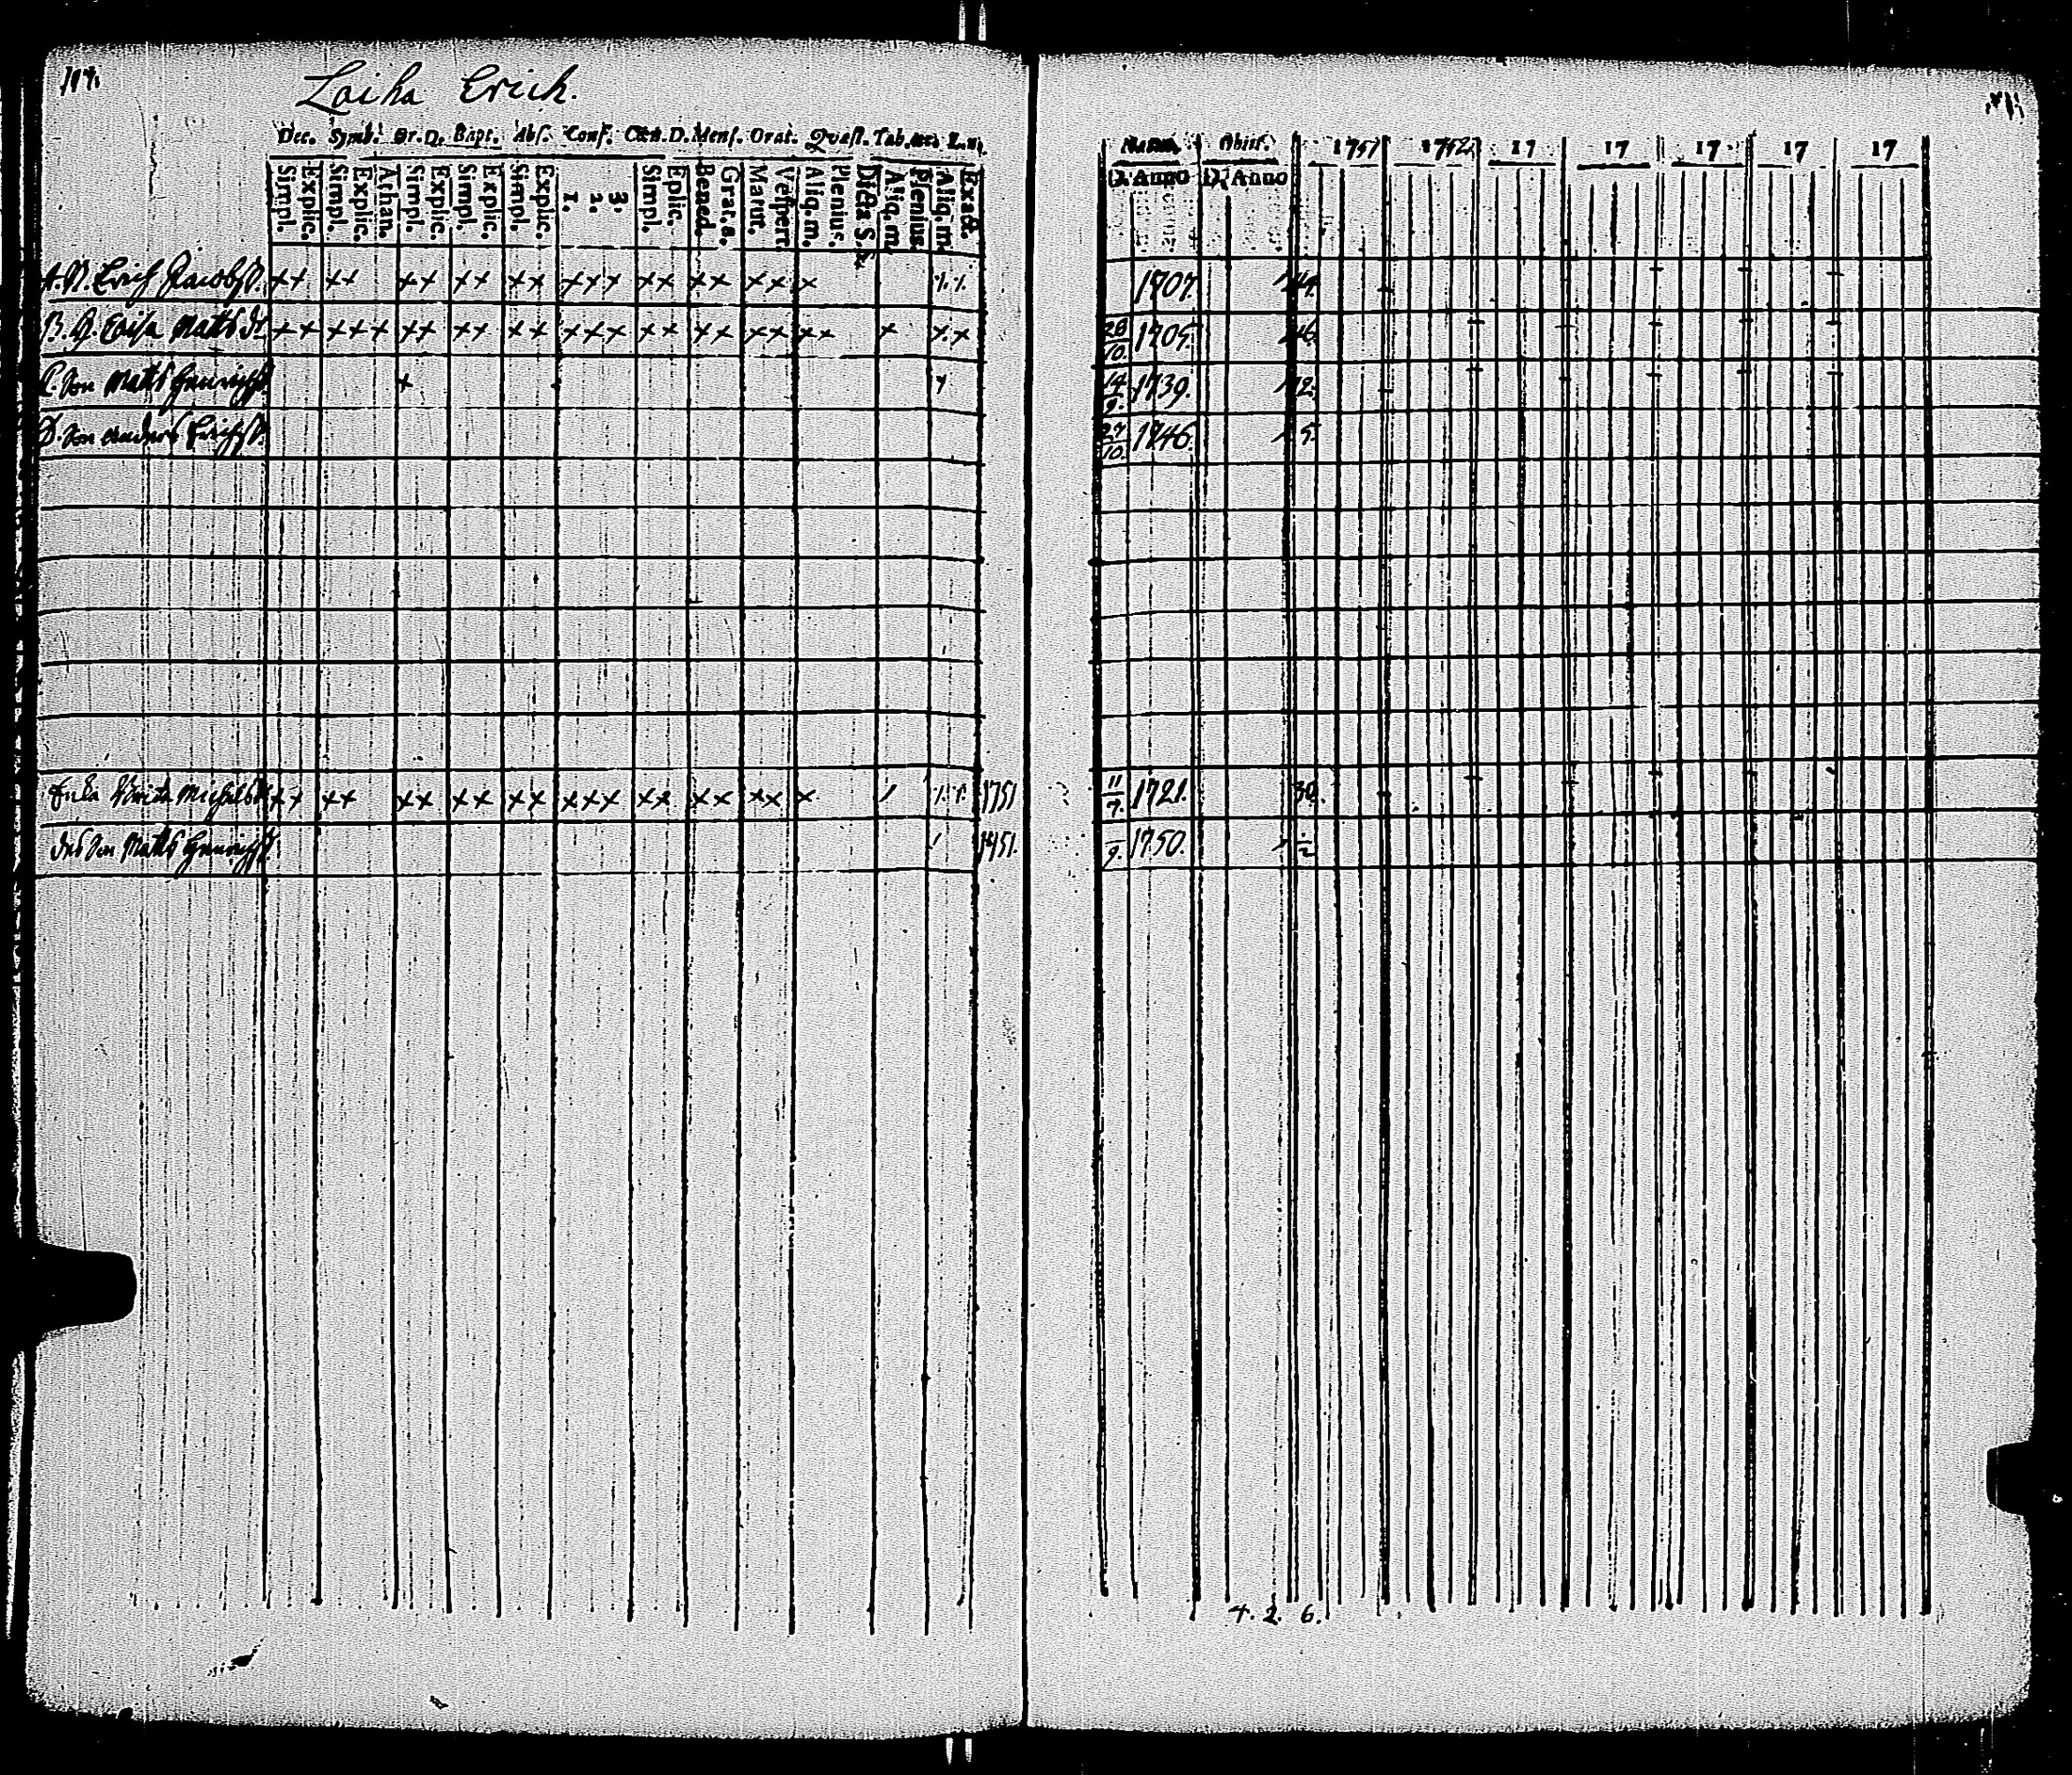 Laiha Erich.
Dec. Symb. Or. D. Bapt. Abs. Conf. Cæn. D. Mens. Orat. Quæst. Tab. L. n.
Simpl. Explic. Simpl. Explic. Athan. Simpl. Explic. Simpl. Explic. Simpl. Explic. 1. 2. 3. Simpl. Eplic. Bened. Grat. a. Matut. Vespert. Aliq. m. Plenius. Dicta S. Aliq. m. Plenius. Aliq. m. Exact
Natus. Obiit. 1751 1752 17 17 17 17 17
D. Anno D. Anno
Erich Jacobss. x x x x x x x x x x x x x x x x x x x x x 1707. 44.
B. Matts dr x x x x x x x x x x x x x x x x x x x x x x x x x x 28/10. 1705. 46.
C. Son Matts Henrichss. x 14/9. 1739. 12.
D. Son Anders Erichss. 27/10. 1746. 5.
Enka Michelsdr x x x x x x x x x x x x x x x x x x x x 1751 11/7. 1721. 30.
Des Son Matts Henrichss. 1751. /9. 1750. 1/2
4. 2. 6.